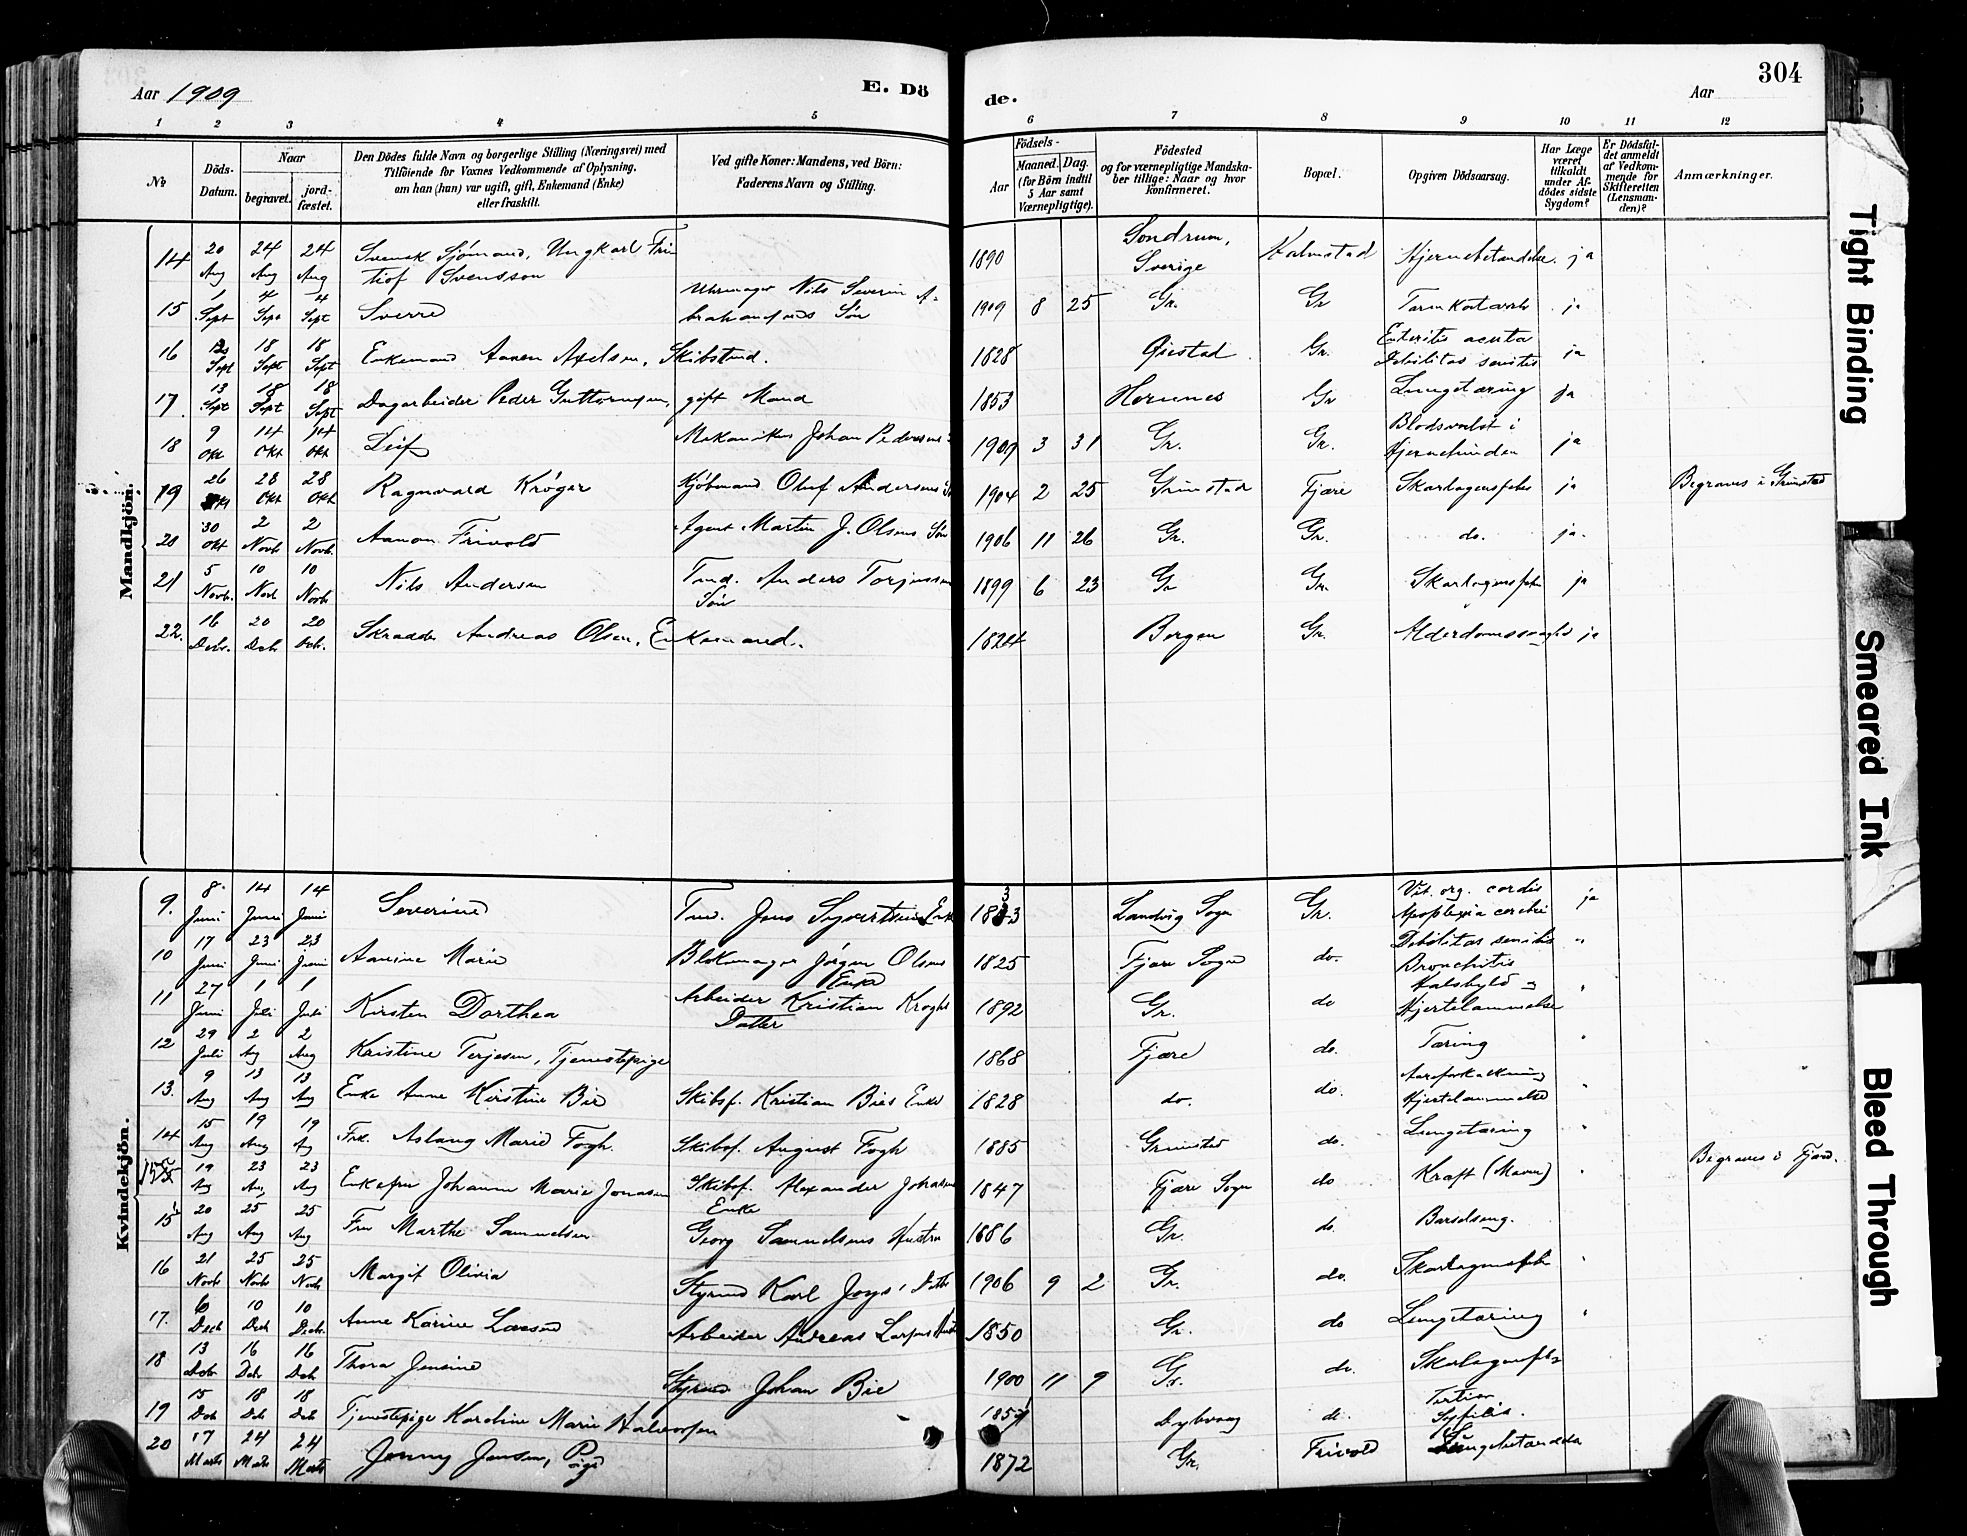 Aar 1909
E. Dö
de.
Aar
304
1 2 3 4 5 6 7 8 9 10 11 12
No
Döds-Datum.
Naar
begravet.
jord-fæstet.
Den Dödes fulde Navn og borgerlige Stilling (Næringsvei) med
Tilföiende for Voxnes Vedkommende af Oplysning,
om han (hun) var ugift, gift, Enkemand (Enke)
eller fraskilt.
Ved gifte Koner: Mandens, ved Börn:
Faderens Navn og Stilling.
Födsels-
Aar
Maaned.
Dag.
(for Börn indtil
5 Aar samt
Værnepligtige).
Födested
og for værnepligtige Mandska-
ber tillige: Naar og hvor
konfirmeret.
Bopæl.
Opgiven Dödsaarsag.
Har Læge
været
tilkaldt
under Af-
dödes sidste
Sygdom?
Er Dödsfal-
det anmeldt
af Vedkom-
mende for
Skifteretten
(Lensman-
den)?
Anmærkninger.
Mandkjön.
14 20 Aug 24 Aug 24 Aug Svensk Sjømand, Ungkarl Fri
tiof Svensson 1890 Sondrum, Sverige Halmstad Hjernebetændelse ja
15 1 Sept 4 Sept 4 Sept Sverre Uhrmager Nils Severin A-
brahamsens Søn 1909 8 25 Gr. Gr Tarmkatarrh ja
16 Sept 18 Sept 18 Sept Enkemand Aanen Axelsen, Skibstmd. 1828 Øiestad Gr. Enteritis acuta
Debilitas senilis ja
17. 13 Sept 18 Sept 18 Sept Dagarbeider Peder Guttormsen, gift Mand 1853 Herennes Gr Lungetæring ja
18 9 Okt 14 Okt 14 Okt Leif Mekanikus Johan Pedersens 1909 3 31 Gr. Gr. i
Hjernehinden ja
19 26 Okt 28 Okt 28 Okt Ragnvald Krøger Kjøbmand Oluf Andersens 1904 2 25 Grimstad Fjære Skarlagensfeber ja Begraves i Grimstad
20 30 Okt 2 Novb. 2 Novb. Aanon Frivold Agent Martin J. Olsens Søn 1906 11 26 Gr. Gr. do. ja.
21 5 Novb. 10 Novb 10 Novb Nils Andersen Tmd. Anders Torjussen
Søn 1899 6 23 Gr Gr. Skarlagensfeber ja
22. 16 Decbr. 20 Decb 20 Decb. Skrædder Andreas Olsen, Enkemand. 1824 Bergen Gr. Alderdomssvaghed ja
Kvindekjön.
9. 8 Juni 14 Juni 14 Juni Severine Tmd. Jens Syvertsens Enke 1833 Landvig Sogn Gr. Vit. org. cordis
Apoplexia cerebri ja
10 17 Juni 23 Juni 23 Juni Aanine Marie Blokmager Jørgen Olsens
Enke 1825 Fjære Sogn do. Debilitas senilis
Bronchitis "
11 27 Juni 1 Juli 1 Juli Kirsten Dorthea Arbeider Kristian Kroghs
Datter 1892 Gr. do Halsbyld og
Hjertelammelse "
12 29 Juli 2 Aug 2 Aug Kristine Terjesen, Tjenestepige 1868 Fjære do. Tæring "
13. 9 Aug 13 Aug 13 Aug Enke Anne Kirstine Bie Skibsf. Kristian Bies Enke 1828 do. do. Aareforkalkning
Hjertelammelse "
14 15 Aug 19 Aug 19 Aug Frk. Aslaug Marie Fogh. Skibsf. August Fogh 1885 Grimstad do. Lungetæring "
15 19 Aug 23 Aug 23 Aug Enkefru Johanne Marie Jonassen Skibsf. Alexander
Enke 1847 Fjære Sogn do Kræft (Maven) " Begraves i Fjære.
15 20 Aug 25 Aug 25 Aug Fru Marthe Samuelsen Georg Samuelsens Hustru 1886 Gr. do Barselseng.
16 21 Novb 25 Novb 25 Novb Margit Olivia Styrmd Karl Datter 1906 9 2 Gr. do. Skarlagensfeber "
17. 6 Decb 10 Decb 10 Decb. Anne Karine Larsen Arbeider Andreas Larsens 1850 Gr. do Lungetæring "
18 13 Decb 16 Decb 16 Decb Thora Jensine Styrmd Johan Bie 1900 11 9 Gr. do. Skarlagensfeber
19 15 Decb 18 Decb 18 Decb Tjenestepige Karoline Marie Halvorsen Dybvaag do. Tertiær
Syfilis.
20 17 Marts 24 Marts 24 Marts Jenny Jensen, Pige 1872 Gr. Frivold Lungebetændelse
Tight Binding
Smeared Ink
Bleed Through